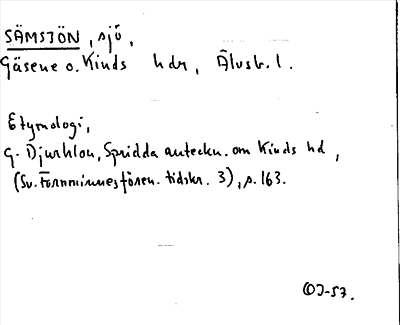 SÄMSJÖN, sjö,
Gäsene o. Kinds hdr, Älvsb. l.
Etymologi,
G. Djurklou, Spridda anteckn. om Kinds hd,
(Sv. Fornminnesfören. tidskr. 3), s. 163.
OJ-57.